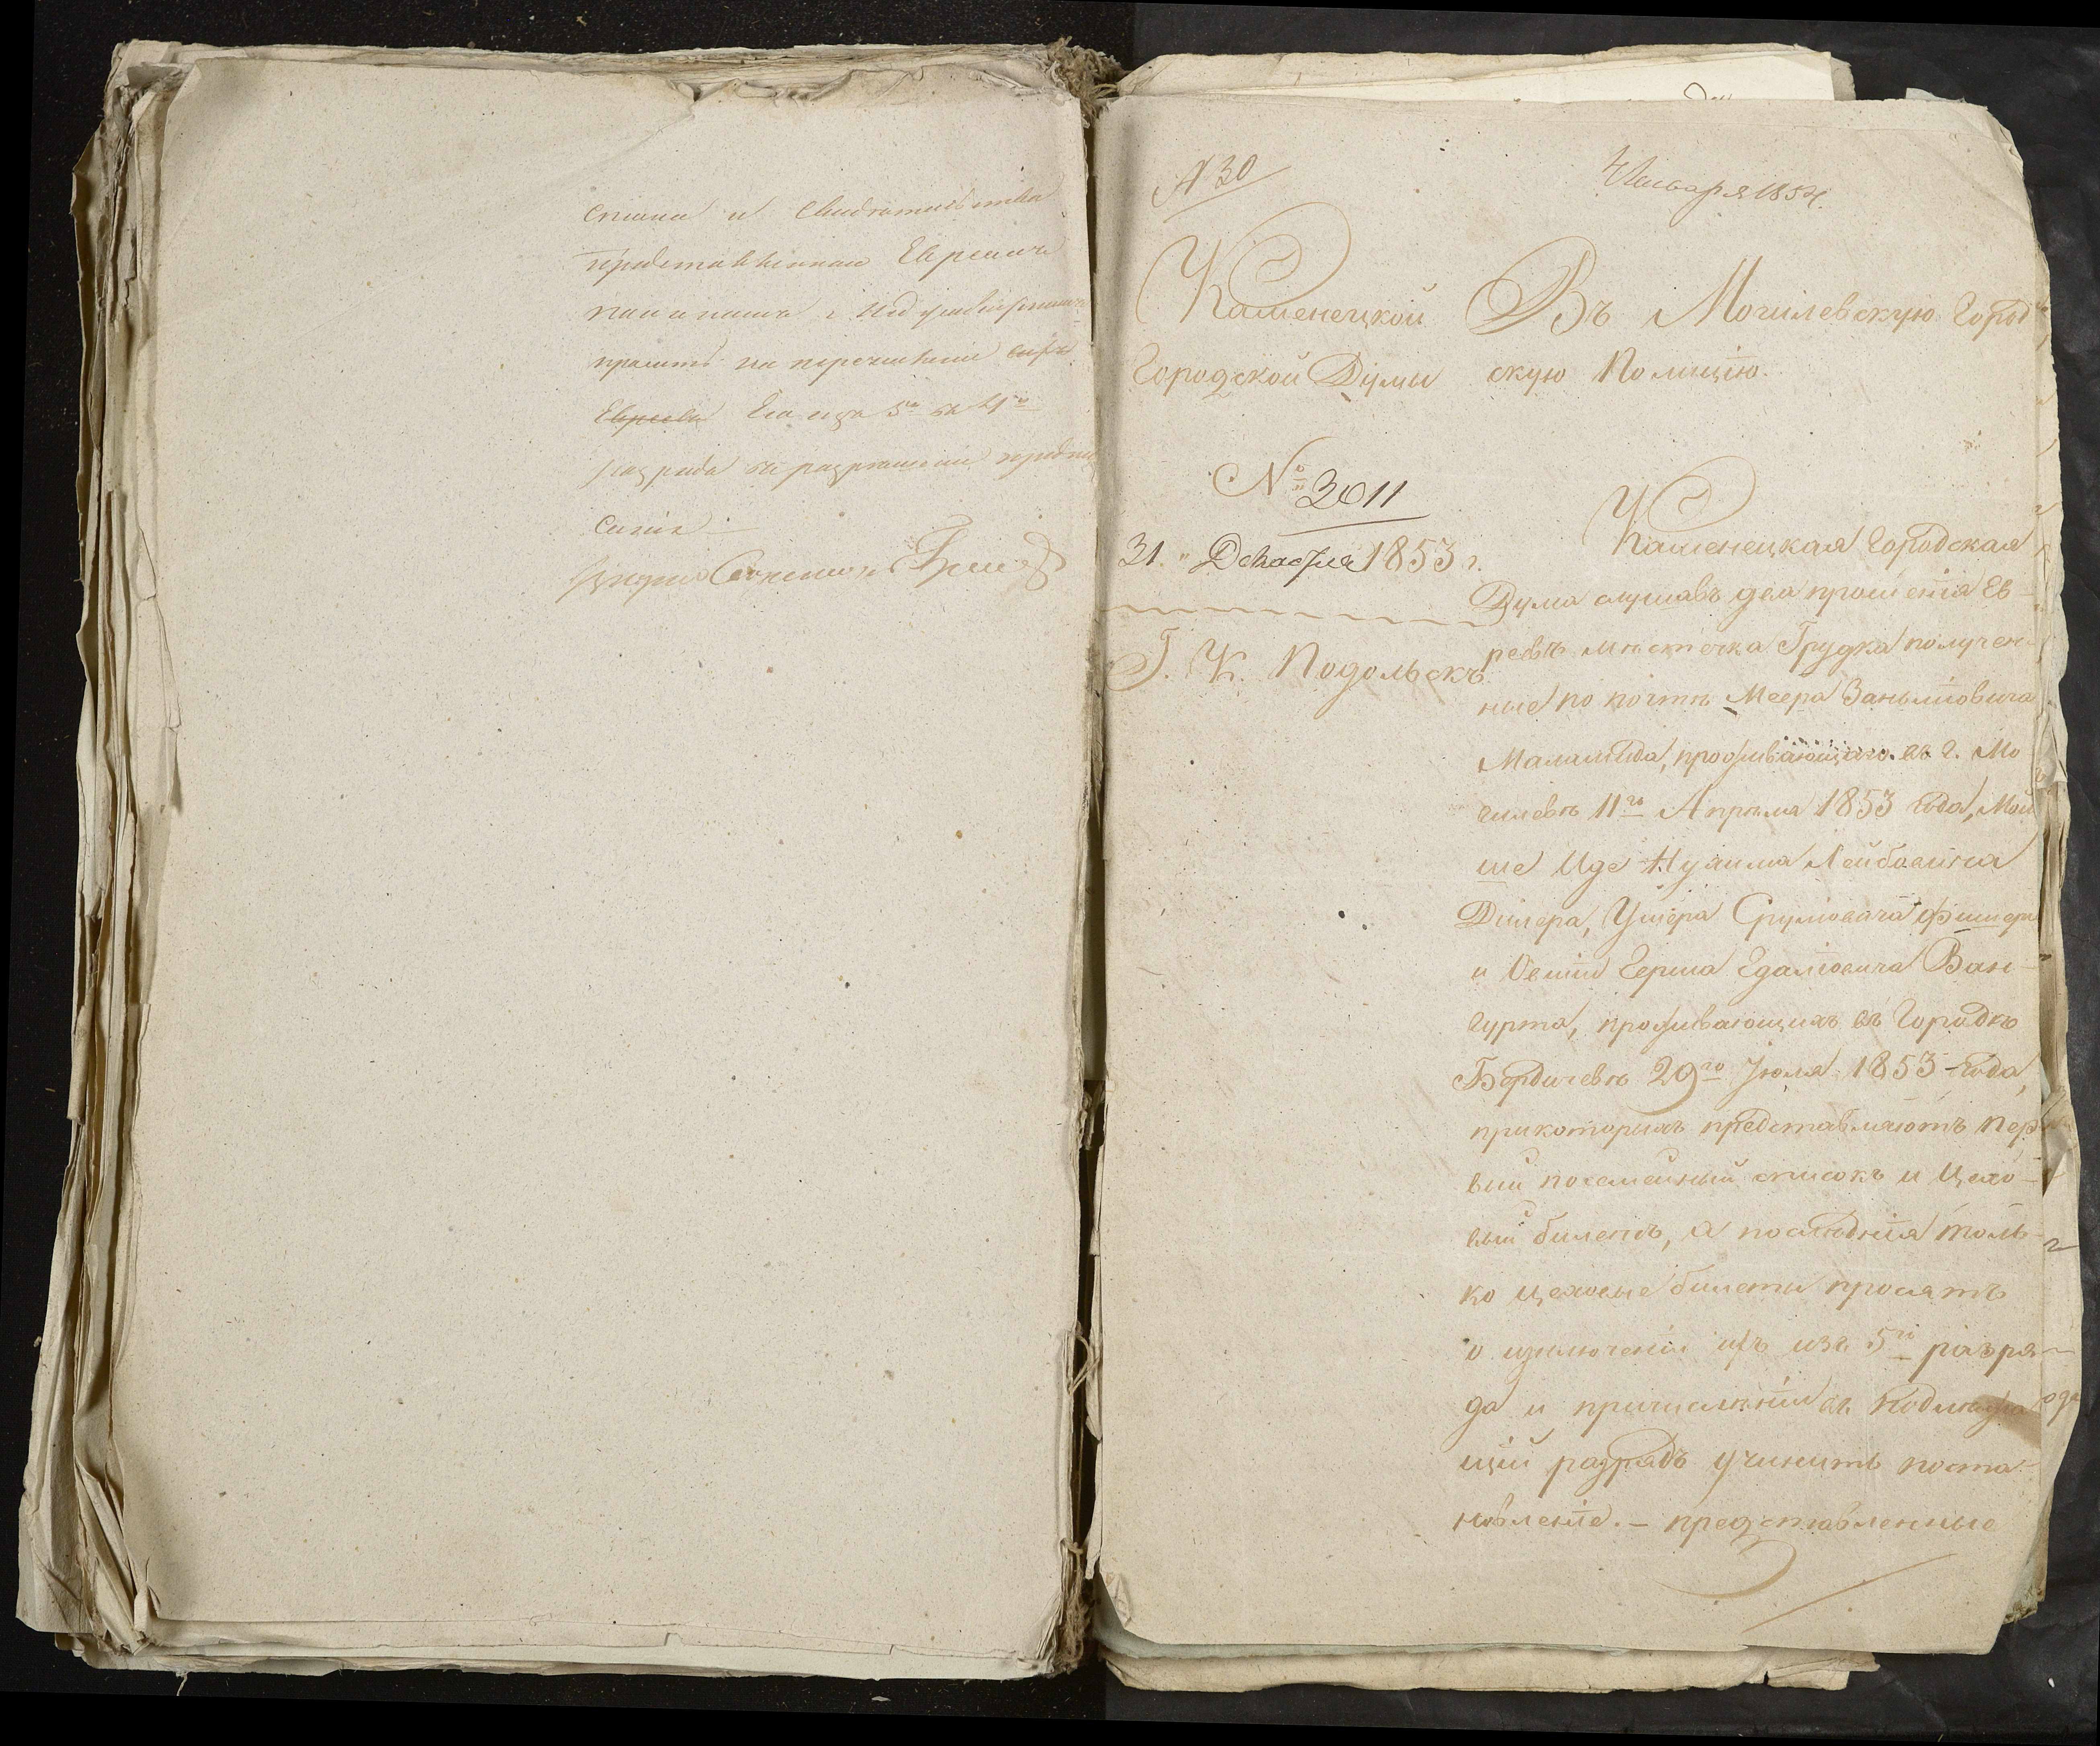 списка и свидетельства
представленнаго Евреемъ
просить на перечисленіе
Евреевъ Его изъ 5го въ 4й
разрядъ
санія. —
№ 30
4 Января 1854.
Каменецкой
Городской Думы
№ 3011
31 " Декабря 1853 г.
Г. К. Подольскъ.
Въ Могилевскую Город
скую Полицію.
Каменецкая Городская
Дума слушавъ дела прошенія Ев-
реевъ мѣстечка Грудка получен-
ные по почтѣ Меера Заньмовича
Маламуда, проживающаго въ г. Мо
гилевѣ 11го Апрѣля 1853 года, Мой
ше Иде Нухима Лейбовича
Дилера, Ушера Срулiовича Фишера
и Герша
гурта, проживающихъ въ Городѣ
Бердичевѣ 29го Іюля 1853 года,
прикоторыхъ представляютъ пер
вый посемейный списокъ и цехо-
вый билетъ, а последнія толь-
ко цеховые билеты просятъ
о изключеніи ихъ изъ 5го разря-
да и причисленіи въ подлежа
щій разрядъ учинить поста-
новленіе. — представленные